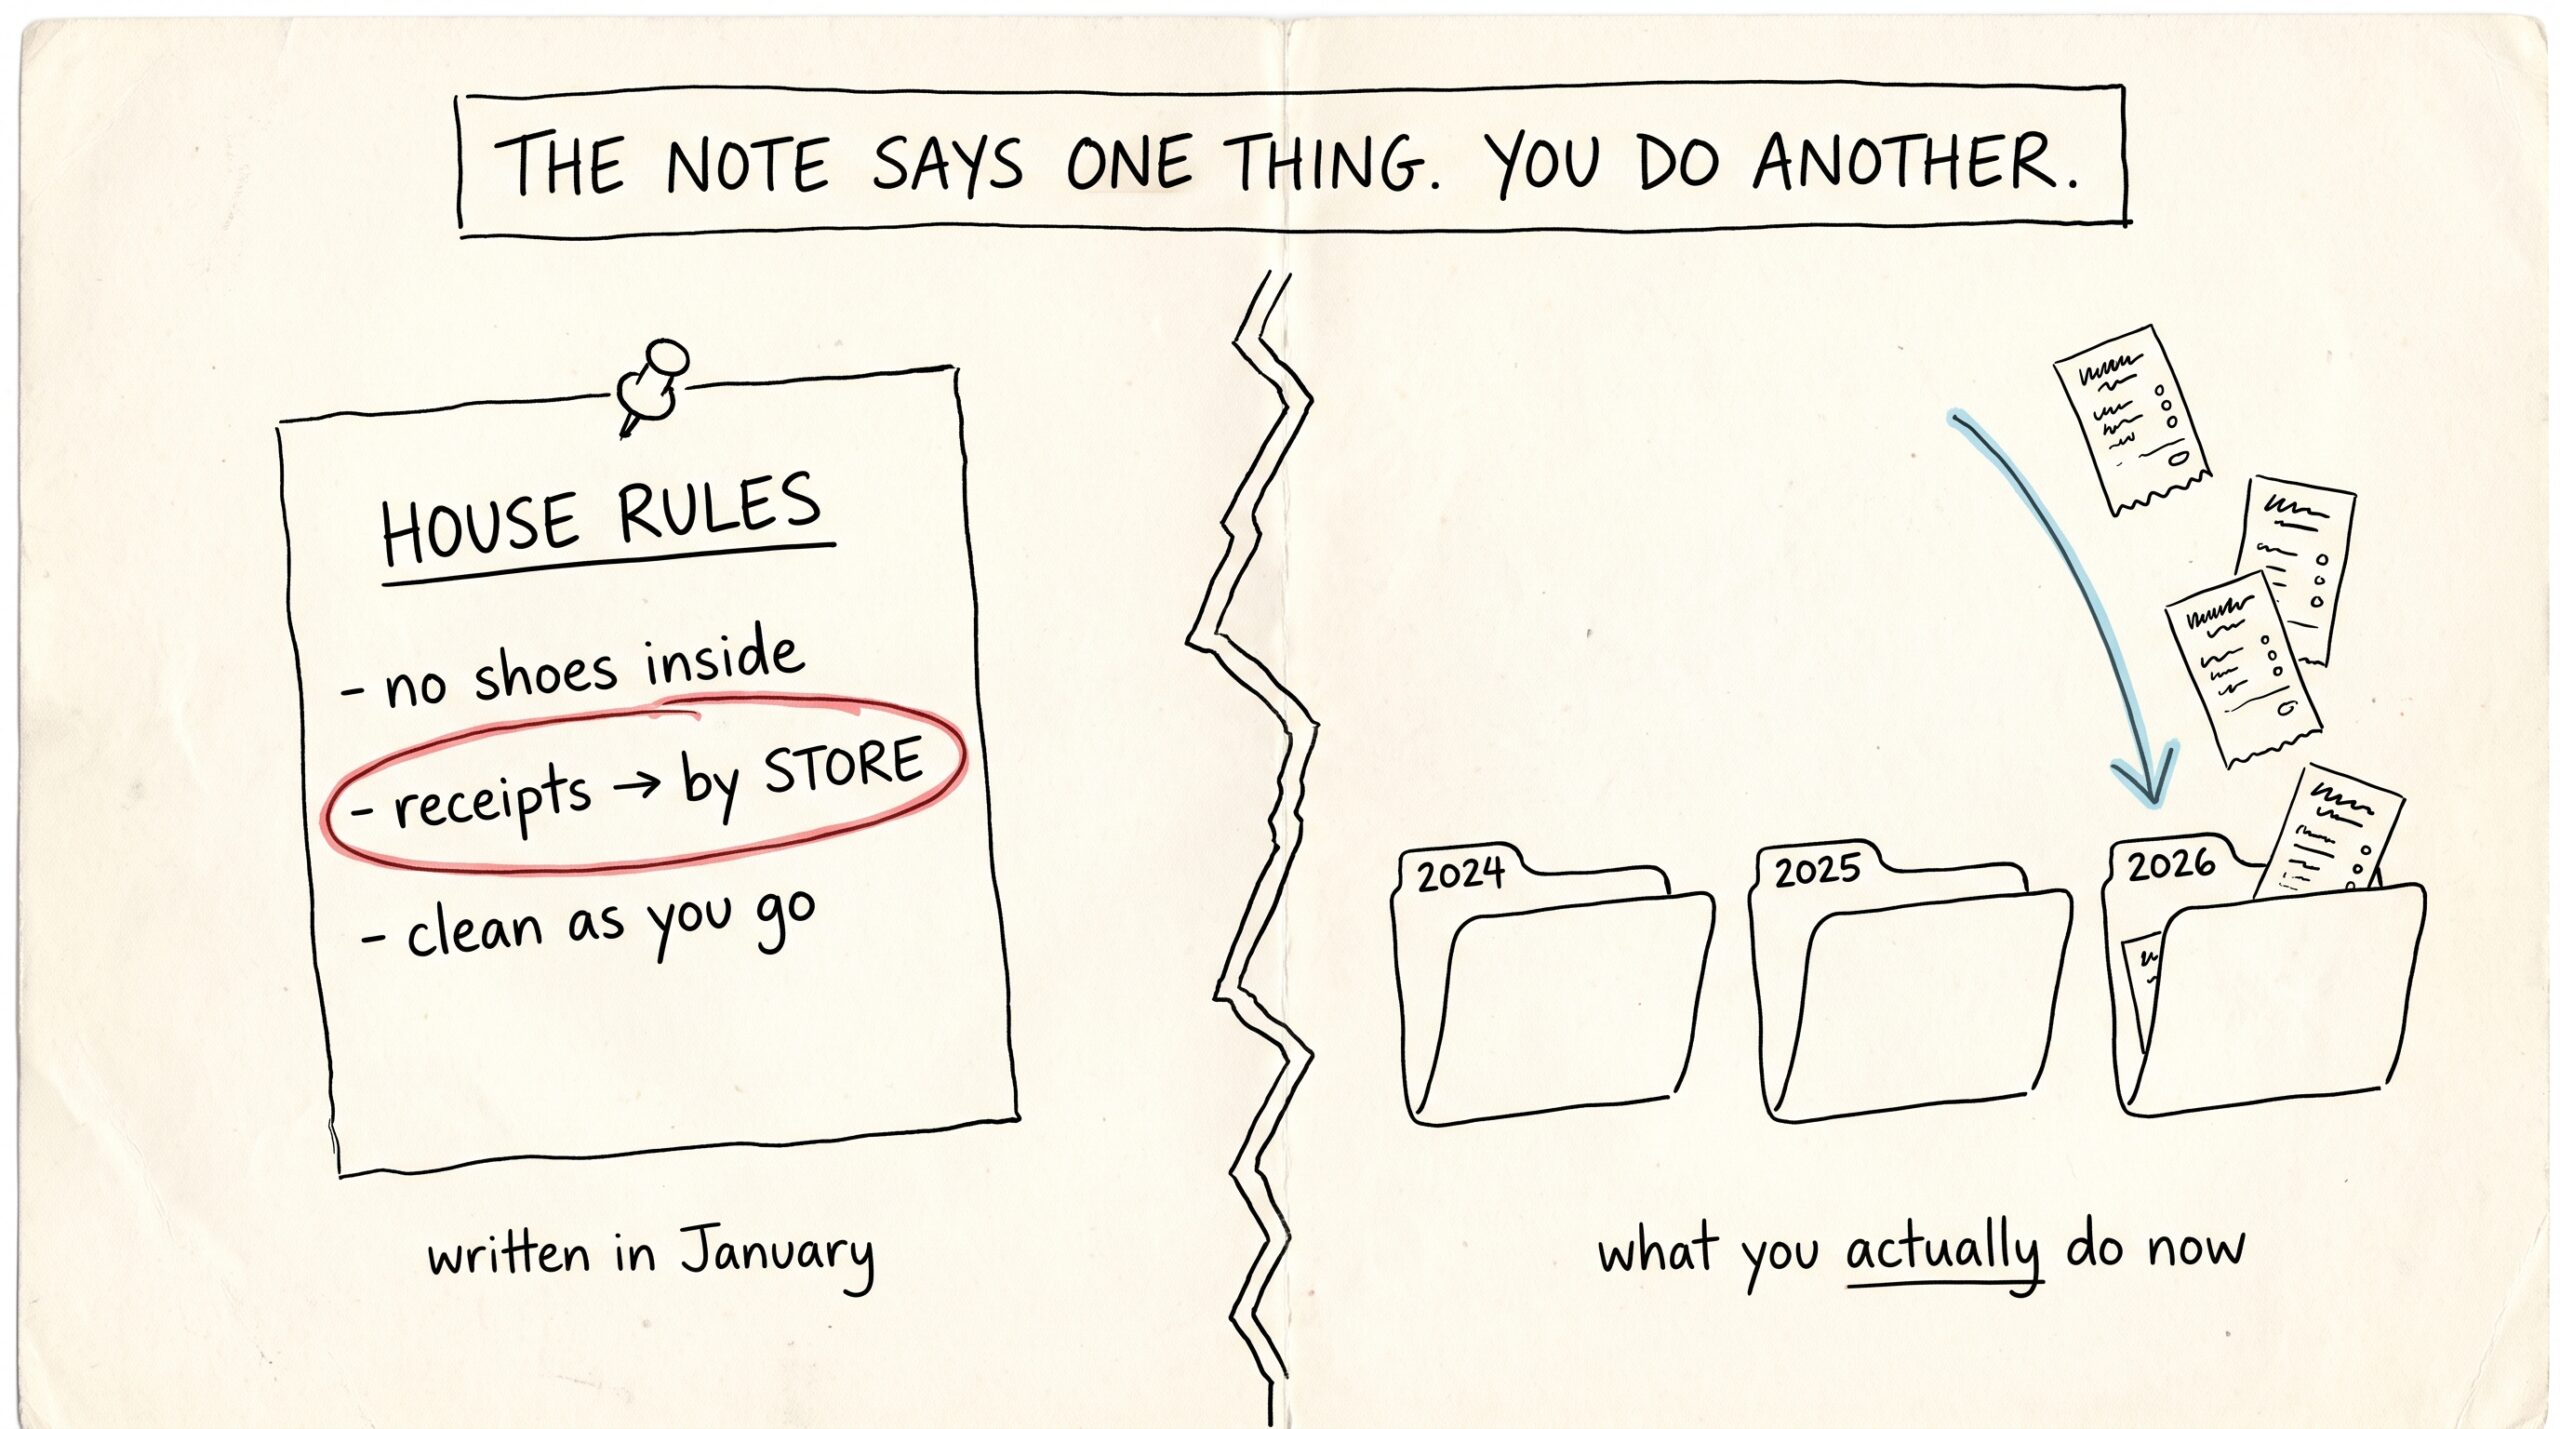 THE NOTE SAYS ONE THING. YOU DO ANOTHER.
HOUSE RULES
- no shoes inside
- receipts → by STORE
- clean as you go
written in January
2024
2025
2026
what you actually do now